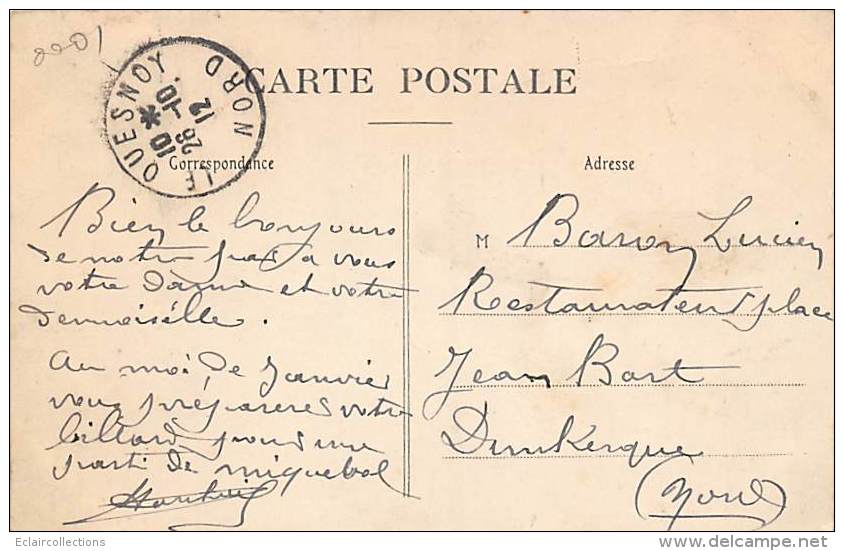 CARTE POSTALE
LE QUESNOY
NORD
10 *
26 -10.
12
Correspondance
Adresse
Bien le bonjours
de notre part a vous
votre dame et votre
demoisélle.
Au moi de Janvier
vous préparerez votre
billard pour une
parti de
M Baron Lucien
Restaurateur place
Jean Bart
Dunkerque
(Nord)
Eclaircollections
www.delcampe.net